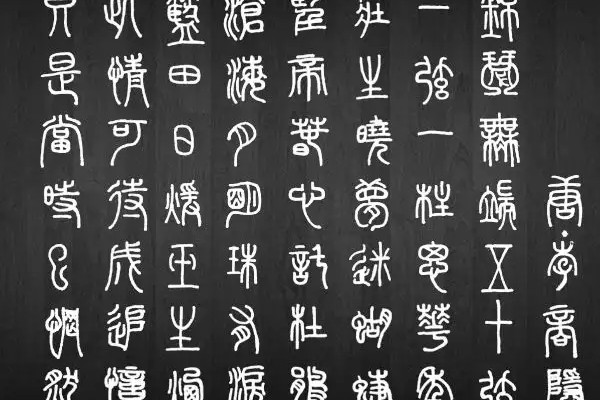 唐·李商隱
錦瑟無端五十弦
一弦一柱思華年
莊生曉夢迷蝴蝶
望帝春心託杜鵑
滄海月明珠有淚
藍田日暖玉生煙
此情可待成追憶
只是當時已惘然